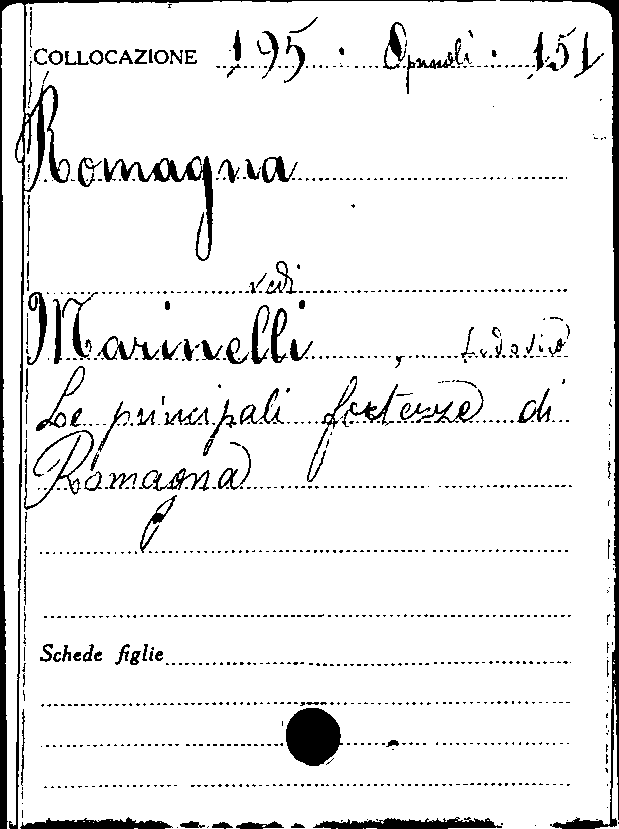 COLLOCAZIONE 195 · Opuscoli · 151
Romagna
vedi
Marinelli, Lodovico
Le principali fortezze di
Romagna
Schede figlie